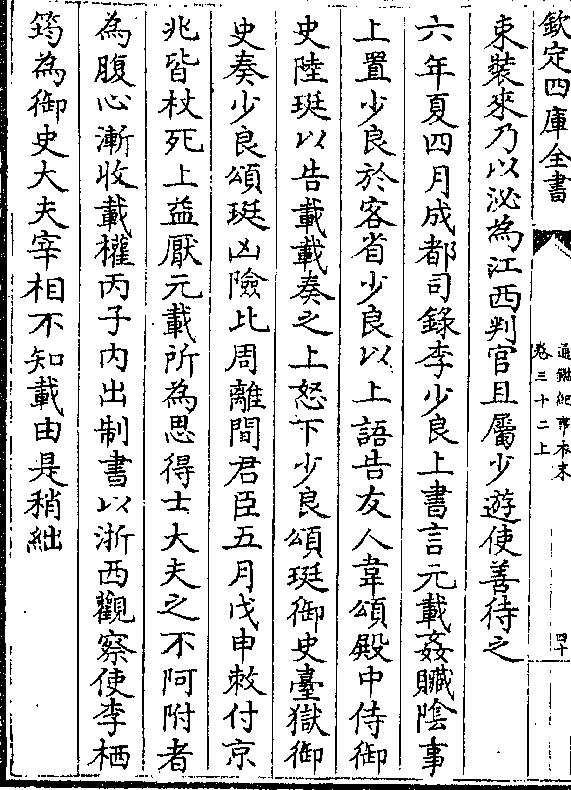 欽定四庫全書
通鑑紀事本末
卷三十二上
四十
束裝來乃以泌為江西判官且屬少遊使善待之
六年夏四月成都司錄李少良上書言元載姦贓陰事
上置少良於客省少良以上語告友人韋頌殿中侍御
史陸珽以告載載奏之上怒下少良頌珽御史臺獄御
史奏少良頌珽凶險比周離間君臣五月戊申敕付京
兆皆杖死上益厭元載所為思得士大夫之不阿附者
為腹心漸收載權丙子內出制書以浙西觀察使李栖
筠為御史大夫宰相不知載由是稍絀